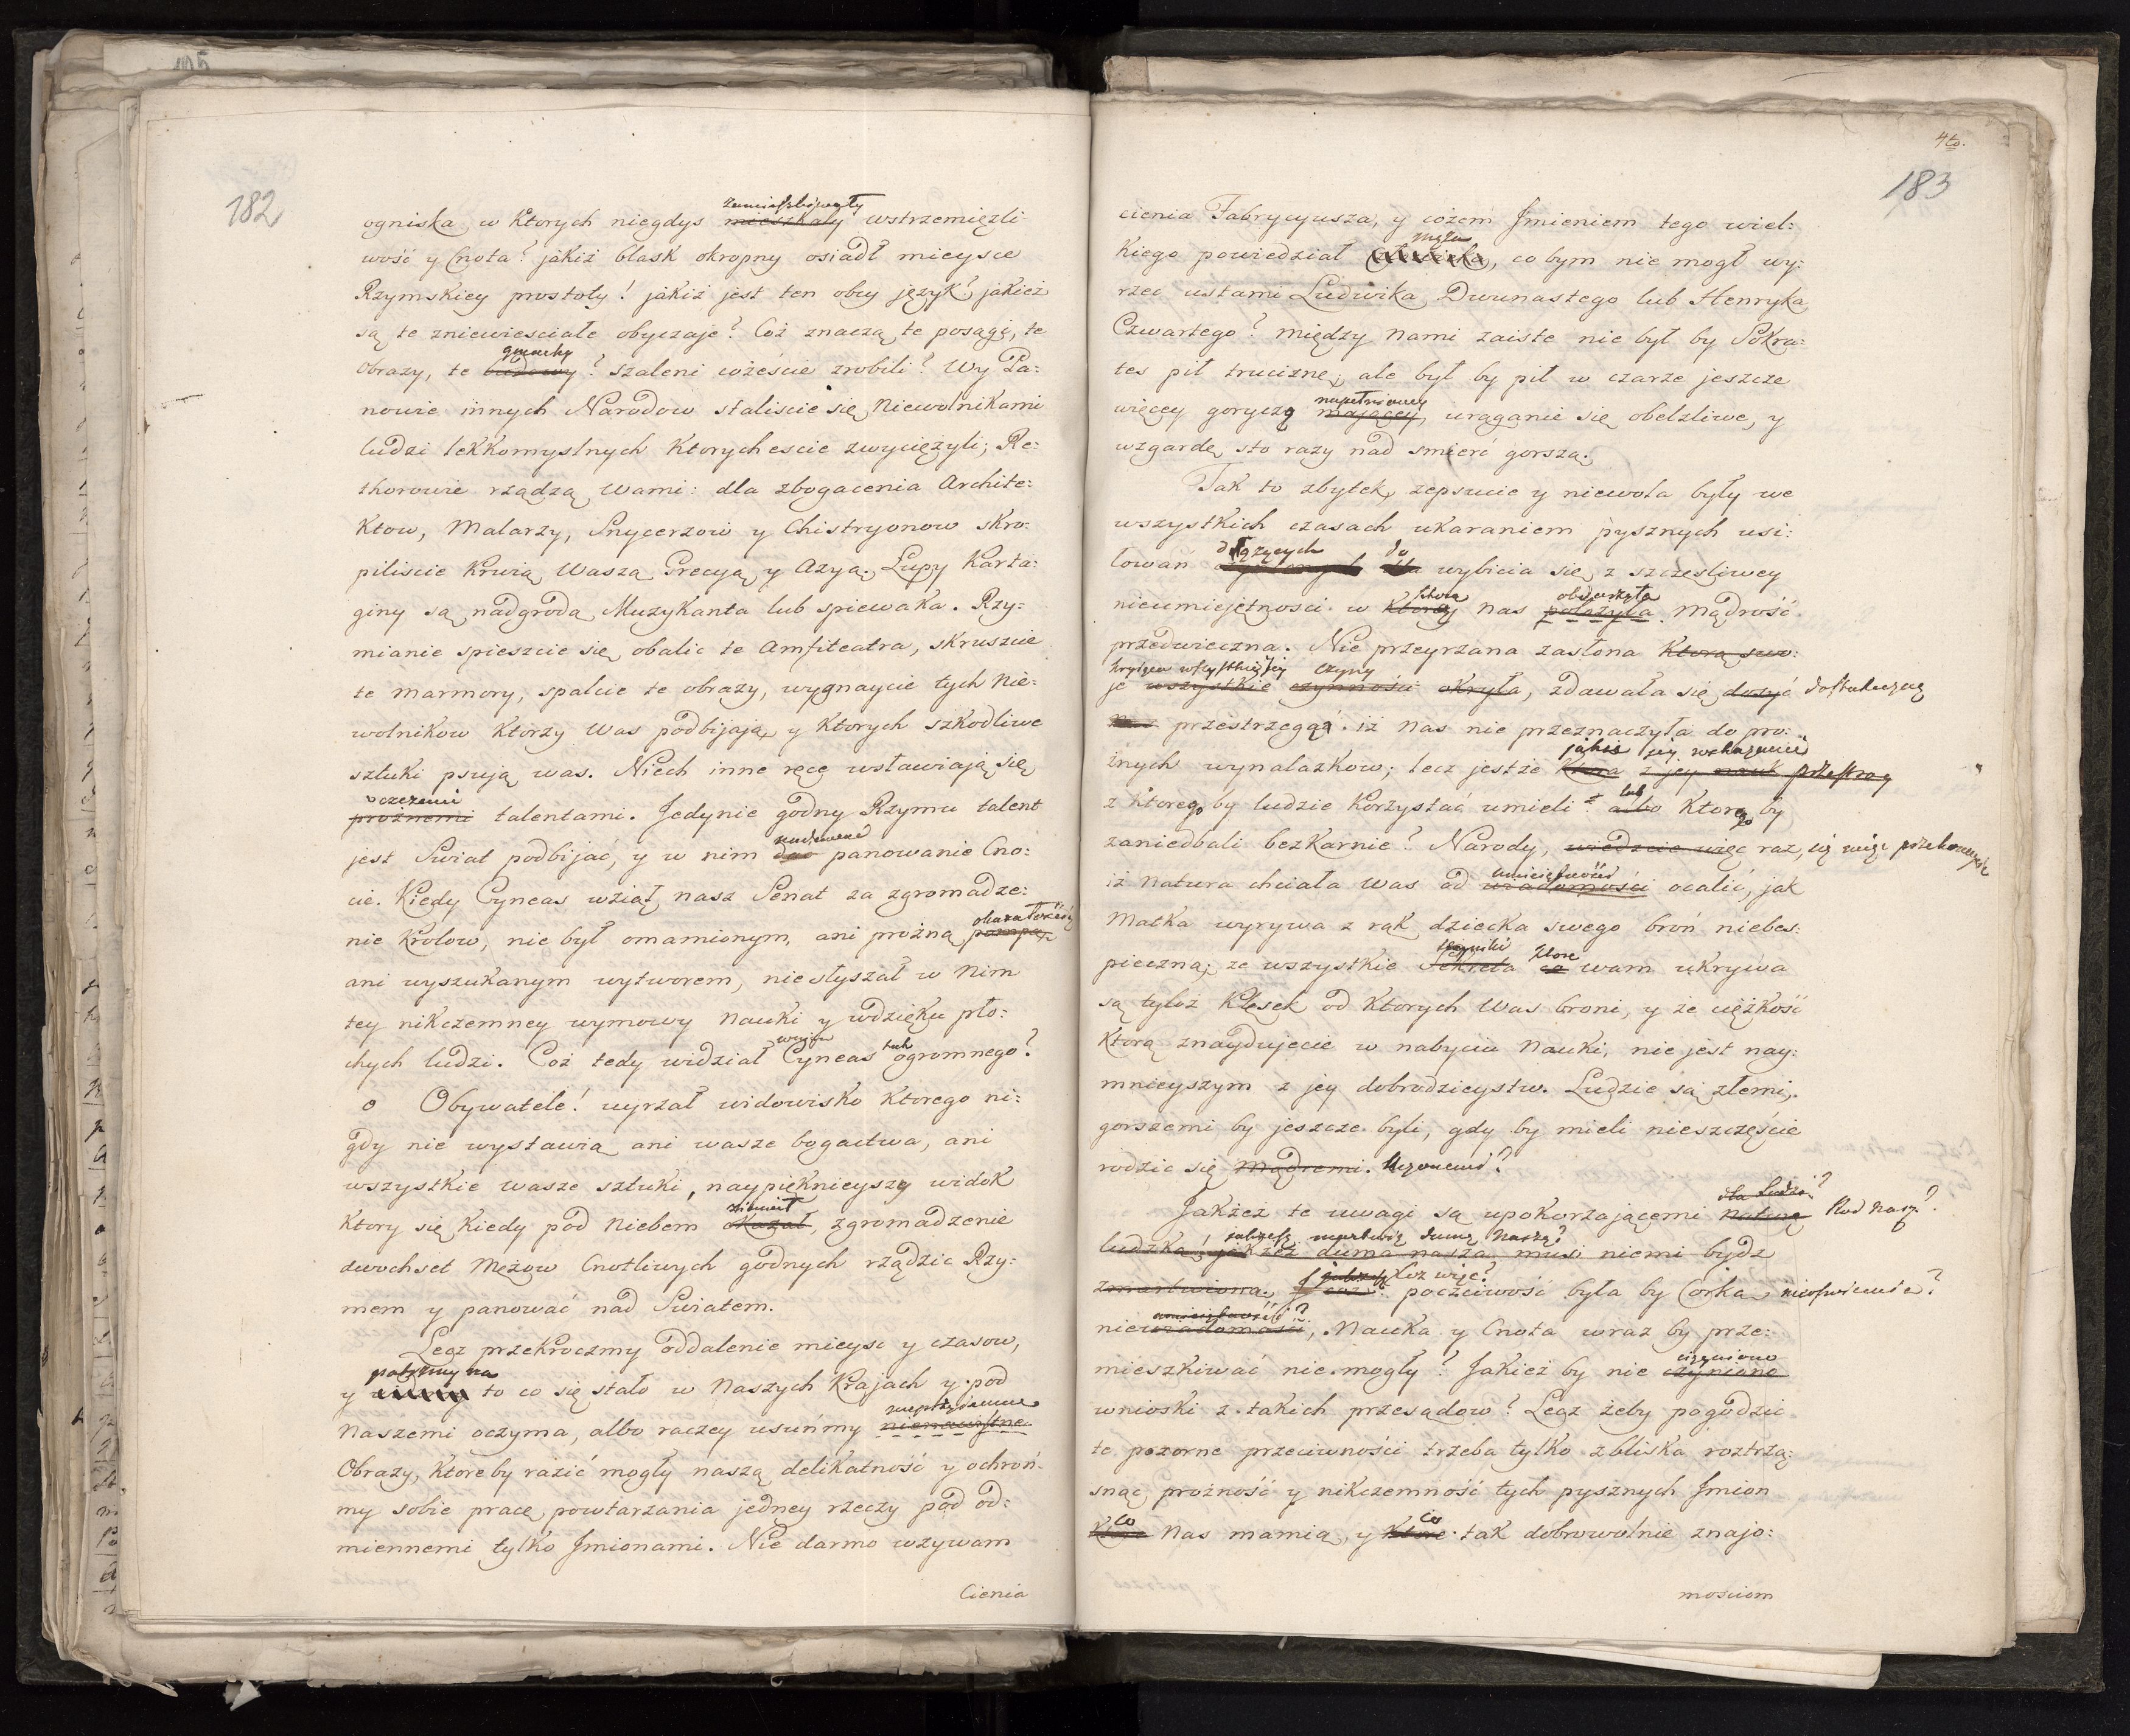 182
zamieszkiwały
ogniska w ktorych niegdys mieszkały wstrzemięzli
wość y Cnota? jakiż blask okropny osiadł mieysce
Rzymskiey prostoty! jakiż jest ten obcy język? jakież
są te zniewiesciałe obyczaje? Coż znaczą te posągi, te
gmachy
obrazy, te budowy? szaleni cożeście zrobili? Wy Pa:
nowie innych Narodow staliscie się Niewolnikami
ludzi lekkomyslnych ktorychescie zwyciężyli; Re:
thorowie rządzą wami: dla zbogacenia Archite:
ktow, Malarzy, Snycerzow y Chistryonow skro:
piliscie krwią Waszą Grecyą y Azyą. Łupy Karta:
giny są nadgrodą Muzykanta lub spiewaka. Rzy:
mianie spieszcie się obalic te Amfiteatra, skruszcie
te marmory, spalcie te obrazy, wygnaycie tych Nie:
wolnikow ktorzy was podbijają y ktorych szkodliwe
sztuki psują was. Niech inne ręce wsławiają się
czczemi
prożnemi talentami. Jedynie godny Rzymu talent
jest Swiat podbijać, y w nim dac panowanie Cno:
cie. Kiedy Cyneas wziął nasz Senat za zgromadze:
okazałością
nie krolow, nie był omamionym, ani prożną pompą
ani wyszukanym wytworem, nie słyszał w nim
tey nikczemney wymowy nauki y wdzięku pło:
tak
chych ludzi. Coż tedy widział Cyneas ogromnego?
o Obywatele! uyrzał widowisko ktorego ni:
gdy nie wystawią ani wasze bogactwa, ani
wszystkie wasze sztuki, naypięknieyszy widok
ziawił
ktory się kiedy pod niebem okazał, zgromadzenie
dwochset Mężow Cnotliwych godnych rządzic Rzy:
mem y panować nad Swiatem.
Lecz przekroczmy oddalenie mieysc y czasow,
patrzmy na
y to co się stało w Naszych Krajach y pod
nieprzyiemne
Naszemi oczyma, albo raczey usuńmy nienawistne
Obrazy, ktoreby razić mogły naszą delikatność y ochroń:
my sobie pracę powtarzania jedney rzeczy pod od:
miennemi tylko Jmionami. Nie darmo wzywam
Cienia
4to.
183
cienia Fabrycyusza, y cożem Jmieniem tego wiel:
męża
kiego powiedział człowieka, co bym nie mogł wy:
rzec ustami Ludwika Dwunastego lub Henryka
Czwartego? między nami zaiste nie był by Sokra:
tes pił truciznę; ale był by pił w czarze jeszcze
napełnioney
więcey goryczą mającey, urąganie się obelzliwe, y
wzgardę sto razy nad smierć gorszą.
Tak to zbytek, zepsucie y niewola były we
wszystkich czasach ukaraniem pysznych usi:
dążących do
łowań dla wybicia się z szczesliwey
ktorą obdarzyła
nieumiejętnosci w ktorey nas położyła Mądrość
przedwieczna. Nie przeyrzana zasłona ktorą swo:
kryjąca wszystkie jey czyny
je wszystkie czynności okryła, zdawała się dosyć dostatecznie
nas przestrzegać iż nas nie przeznaczyła do pro:
jakie jey wskazanie
żnych wynalazkow; lecz jestże ktora z jey nauk przestrog
lub
z ktorego by ludzie korzystać umieli? albo ktorego by
zaniedbali bezkarnie? Narody, wiedzcie więc raz, się więc przekonaycie
umieiętności
iż natura chciała was od wiadomości ocalić, jak
Matka wyrywa z rąk dziecka swego broń niebes:
tayniki ktore
pieczną; ze wszystkie Sekreta co wam ukrywa
są tyloż Klęsek od ktorych Was broni, y że ciężkość
Ktorą znaydujecie w nabyciu Nauki, nie jest nay:
mnieyszym z jey dobrodzieystw. Ludzie są złemi,
gorszemi by jeszcze byli, gdy by mieli nieszczęście
rodzic się Mądremi. Uczonemi?
dla Ludzi?
Jakżeż te uwagi są upokorzającemi Naturę Rod Nasz?
jakżesz martwią dumę naszę!
ludzką! jakżeż duma nasza musi niemi bydz
Coż więc?
zmartwiona. coż? poczciwość była by Corką nieoswiecenia?
umieiętności?
niewiadomości, Nauka y Cnota wraz by prze:
mieszkiwać nie mogły? Jakież by nie czyniono
wnioski z takich przesądow? Lecz żeby pogodzic
te pozorne przeciwności trzeba tylko zbliska roztrzą:
snąc prożność y nikczemność tych pysznych Jmion
co co
ktore Nas mamią, y ktore tak dobrowolnie znajo:
mosciom